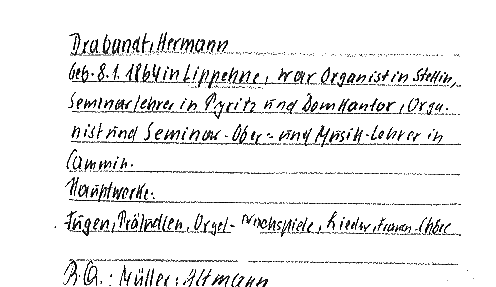 Drabandt, Hermann
geb. 8.1.1864 in Lippehne, war Organist in Stettin,
Seminarlehrer in Pyritz und Domkantor, Orga-
nist und Seminar-Ober- und Musik-Lehrer in
Cammin.
Hauptwerke:
Fugen, Präludien, Orgel-Nachspiele, Lieder, Frauen-Chöre
B.Q.: Müller; Altmann